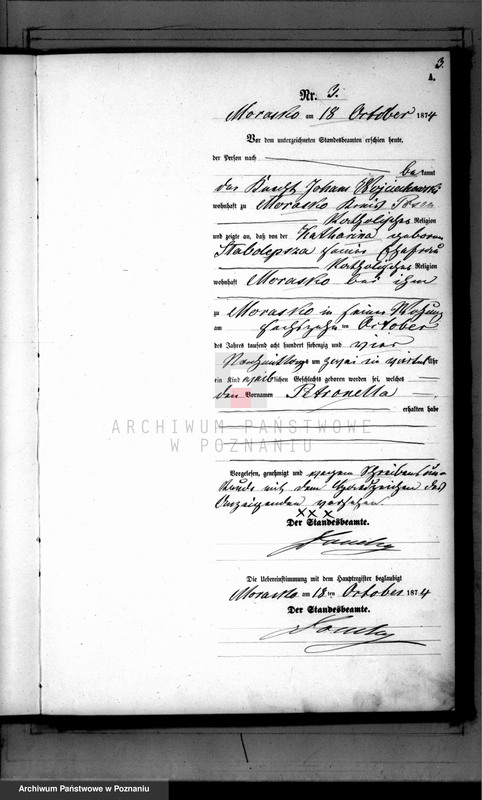 3.
A.
Nr. 3.
Morasko am 18 October 1874
Vor dem unterzeichneten Standesbeamten erschien heute,
der Person nach
bekannt
der Knecht Johann Wojciechowski
wohnhaft zu Morasko Kreis Posen
Katholischer Religion
und zeigte an, daß von der Katharina geborene
seiner Ehefrau
Katholischer Religion
wohnhaft Morasko bei ihm
zu Morasko in seiner Wohnung
am sechszehn ten October
des Jahres tausend acht hundert siebenzig und vier
Nachmittags um zwei ein viertel Uhr
ein Kind weiblichen Geschlechts geboren worden sei, welches
den Vornamen Petronella
erhalten habe
ARCHIWUM PAŃSTWOWE
W POZNANIU
Vorgelesen, genehmigt und wegen Schreibensun-
kunde mit dem Handzeichen des
Anzeigenden versehen.
xxx
Der Standesbeamte.
Die Uebereinstimmung mit dem Hauptregister beglaubigt
Morasko am 18 ten October 1874
Der Standesbeamte.
Archiwum Państwowe w Poznaniu